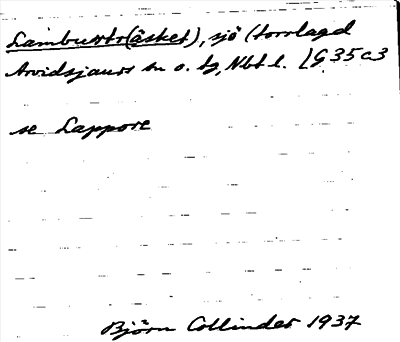 Lambustr(äsket), sjö (torrlagd
Arvidsjaurs sn o. tg, Nbt l. [G 35 c 3
se Lappore
Björn Collinder 1937